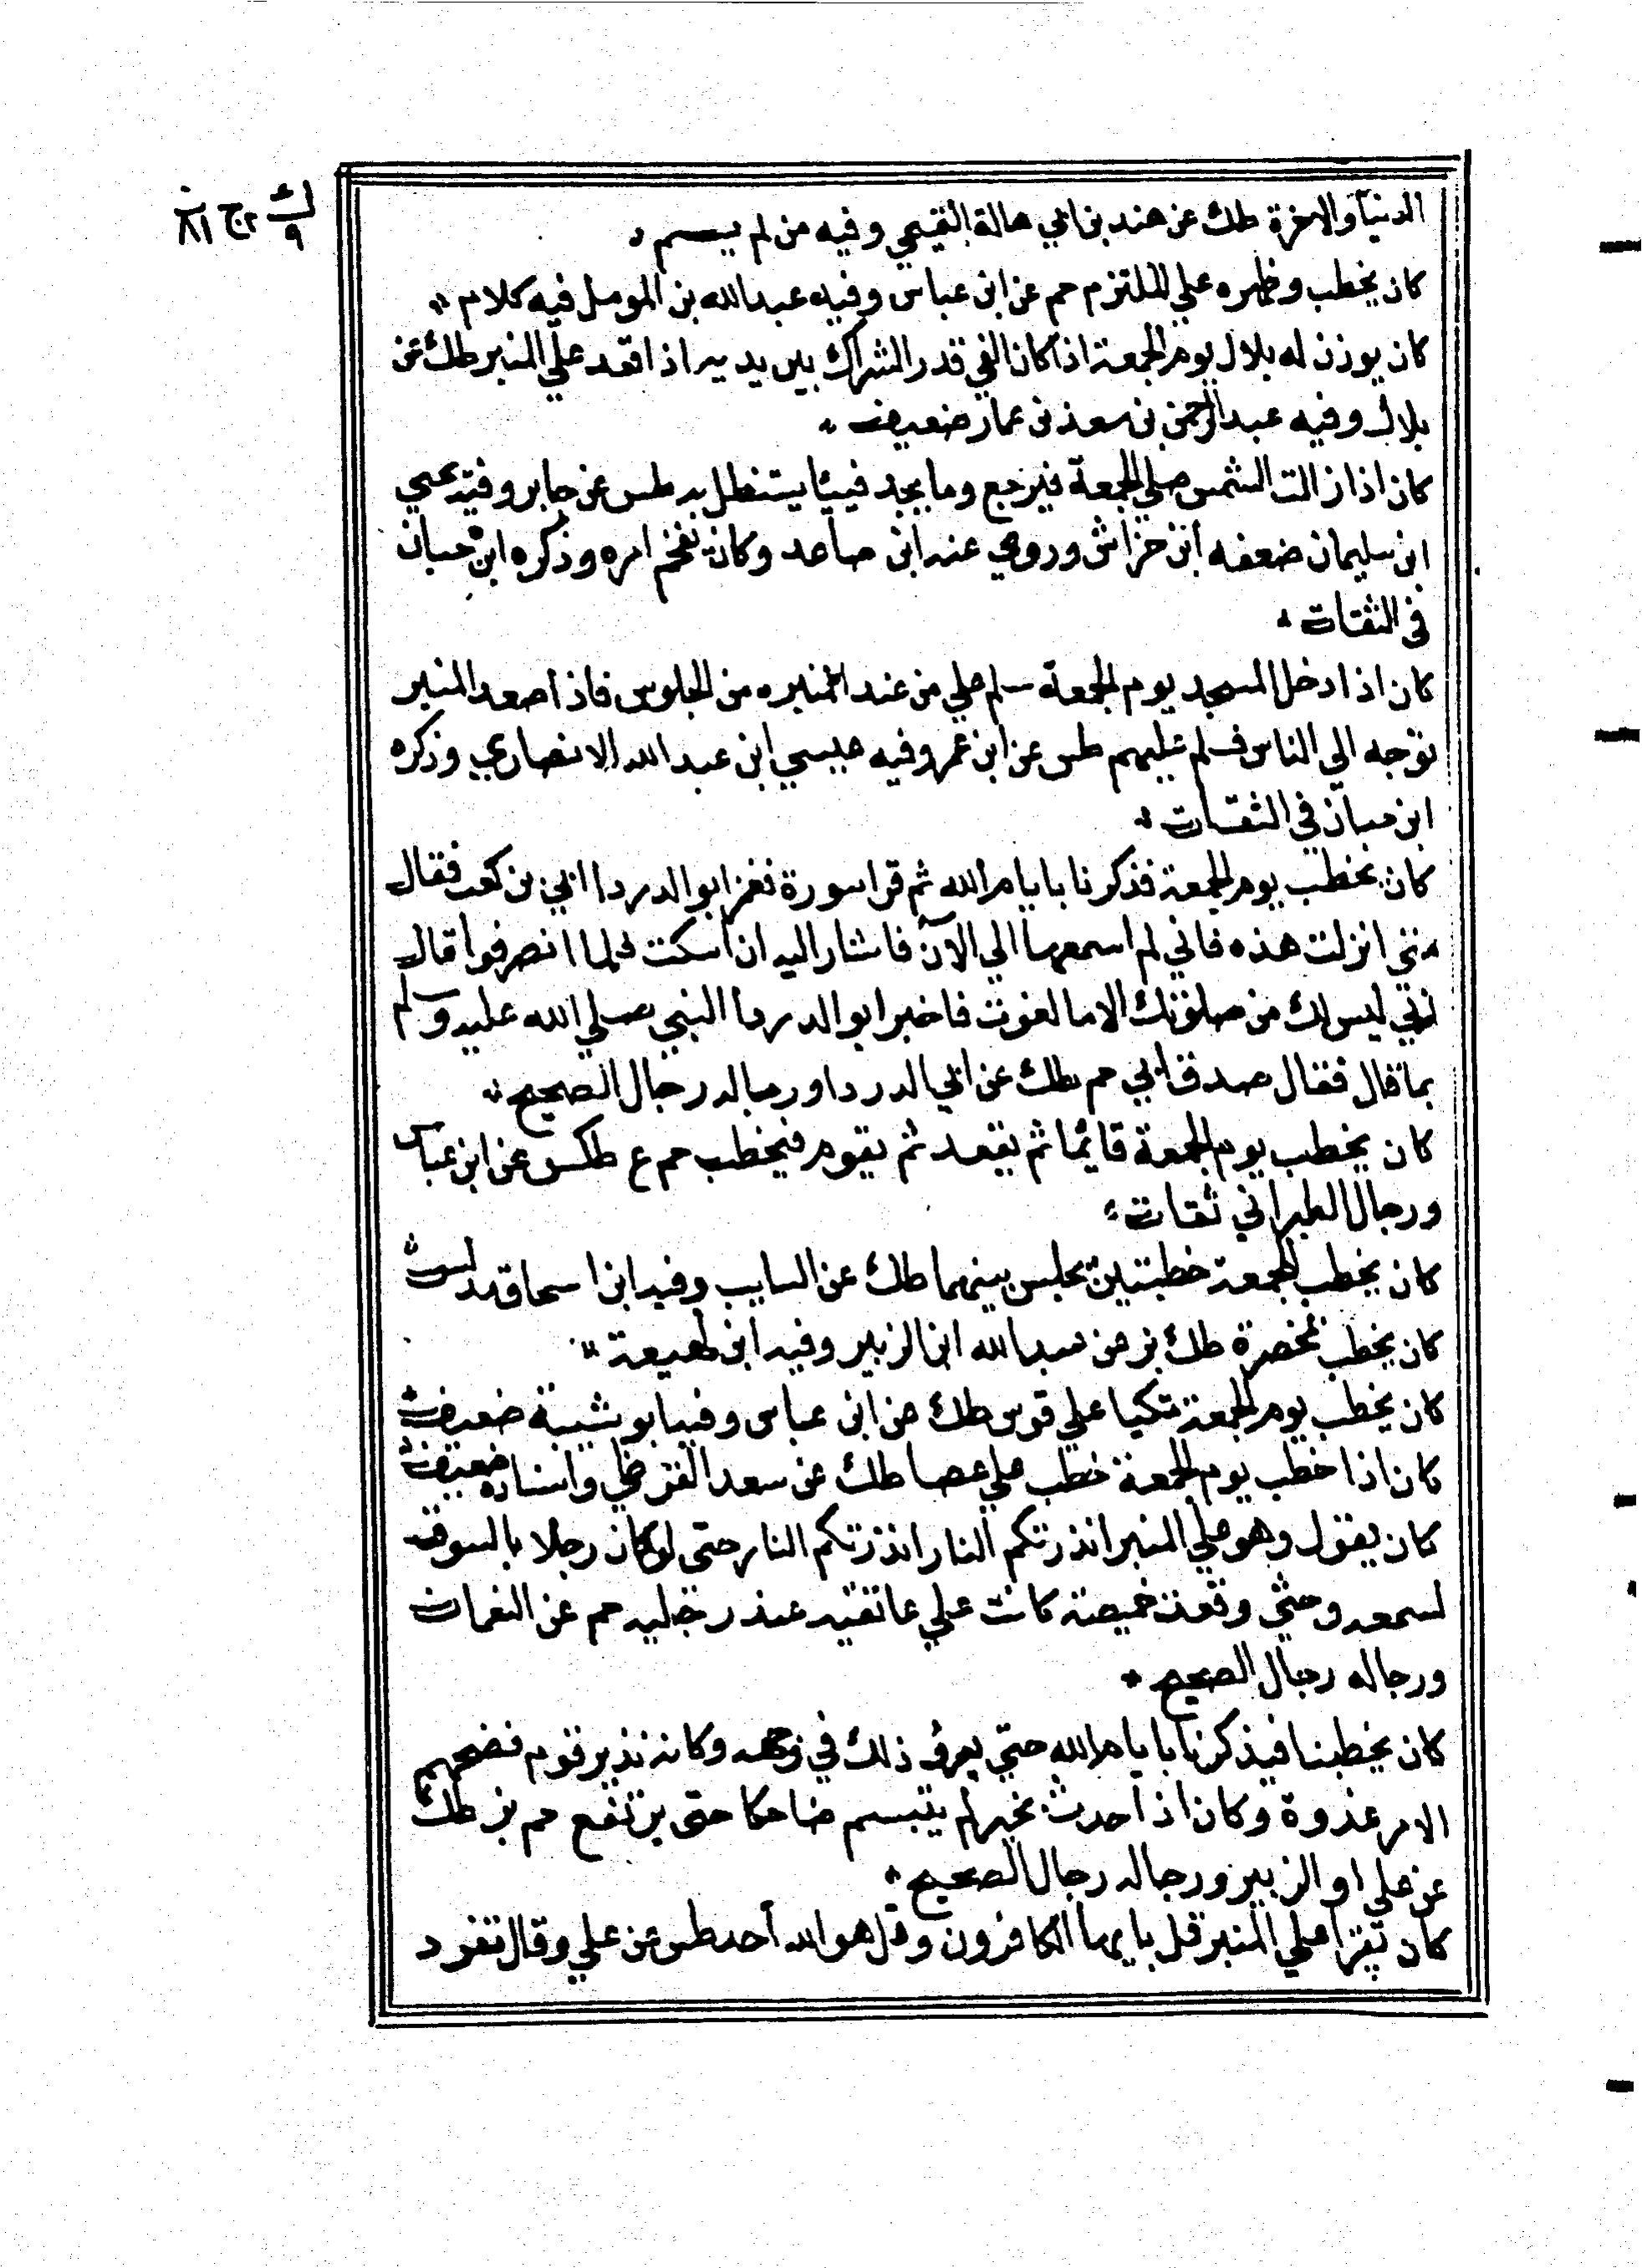 الدنيا والاخرة طك عن هند بن ابي هالة التميمي وفيه من لم يسم
كان يخطب وظهره علي الملتزم حم عن ابن عباس وفيه عبد الله بن المومل فيه كلام
كان يوزن له بلال يوم الجمعة اذا كان الفي قدر الشراك بين يديه اذا قعد علي المنبر طك عن
بلال وفيه عبد الرحمن بن سعد بن عمار ضعيف
كان اذا زالت الشمس صلي الجمعة فيرجع وما يجد فيئا يستظل به طس عن جابر وفيه يحيي
ابن سليمان ضعفه ابن خراش وروي عنه ابن صاعد وكان يفخم امره وذكره ابن حبان
في الثقات
كان اذا دخل المسجد يوم الجمعة سلم علي من عند المنبره من الجلوس فاذا صعد المنبر
توجه الي الناس فسلم عليهم طس عن ابن عمر وفيه عيسي ابن عبد الله الانصاري وذكره
ابن حبان في الثقات
كان يخطب يوم الجمعة فذكرنا بايام الله ثم قرا سورة فغمز ابو الدردا ابي بن كعب فقال
متي انزلت هذه فاني لم اسمعها الي الآن فاشار اليه ان اسكت فلما انصرفوا قال
ابي ليس لك من صلوتك الا ما لغوت فاخبر ابو الدردا النبي صلي الله عليه وسلم
بما قال فقال صدق ابي حم طك عن ابي الدردا ورجاله رجال الصحيح
كان يخطب يوم الجمعة قايما ثم يقعد ثم يقوم فيخطب حم ع طكس عن ابن عباس
ورجال الطبراني ثقات
كان يخطب الجمعة خطبتين يجلس بينهما طك عن السايب وفيه ابن اسحاق مدلس
كان يخطب بمخصرة طك بز عن عبد الله ابن الزبير وفيه ابن لهيعة
كان يخطب يوم الجمعة متكيا علي قوس طك عن ابن عباس وفيه ابو شيبة ضعيف
كان اذا خطب يوم الجمعة خطب علي عصا طك عن سعد القرظي واسناده ضعيف
كان يقول وهو علي المنبر انذرتكم النار انذرتكم النار حتى لو كان رجلا بالسوق
لسمعه وحتي وقعت خميصة كانت علي عاتقيه عند رجليه حم عن النعمان
ورجاله رجال الصحيح
كان يخطبنا فيذكرنا بايام الله حتي يعرف ذلك في وجهه وكانه نذير قوم فضحهم
الامر غدوة وكان اذا حدث بخير لم يتبسم ضاحكا حتى يرتفع حم بز طك
عن علي او الزبير ورجاله رجال الصحيح
كان يقرا علي المنبر قل يايها الكافرون وقل هو الله أحد طس عن علي وقال تفرد